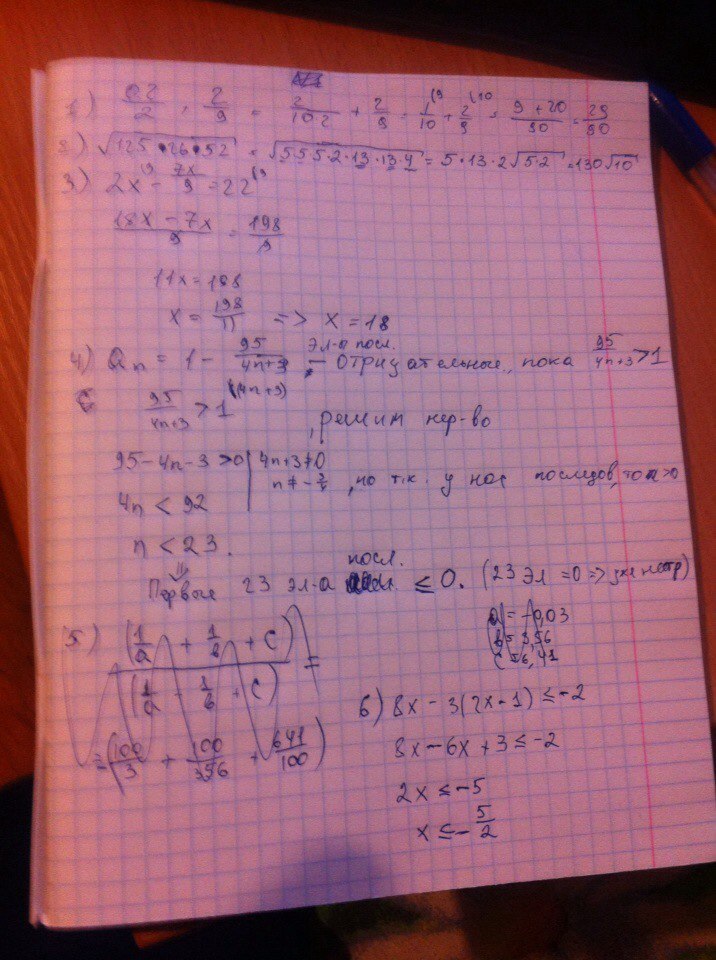 1) 0,2/2 + 2/9 = 2/10·2 + 2/9 = 1/10 (9 + 2/9 (10 = 9+20/90 = 29/90
2) √125·26·52 = √5·5·5·2·13·13·4 = 5·13·2√5·2 = 130√10
3) 2x (9 - 7x/9 = 22 (9
18x - 7x/9 = 198/9
11x = 198
x = 198/11 => x = 18
4) an = 1 - 95/4n+3, эл-ы посл. - отрицательные, пока 95/4n+3 > 1
95/4n+3 > 1 (4n+3)
, решим нер-во
95-4n-3 > 0 | 4n+3≠0
4n < 92 n ≠ -3/4, но т.к. у нас последов, то n>0
n < 23.
Первые 23 эл-а посл. ≤ 0. (23 эл = 0 =>
5) (1/a + 1/b + c)/(1/a - 1/b + c) =
= (100/3 + 100/356 + 641/100)
a = -0,03
b = 3,56
6) 8x - 3(2x-1) ≤ -2
8x - 6x + 3 ≤ -2
2x ≤ -5
x ≤ -5/2